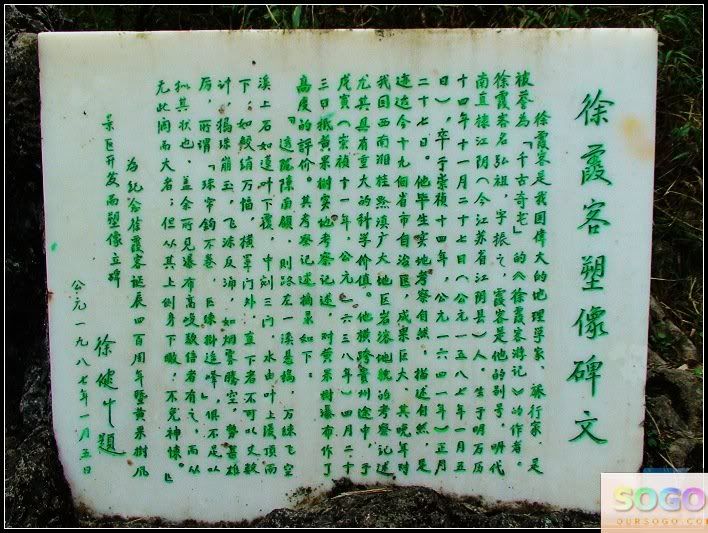 徐霞客塑像碑文
徐霞客是我国伟大的地理学家、旅行家,是
被誉为「千古奇书」的《徐霞客游记》的作者。
徐霞客名弘祖,字振之,霞客是他的别号,明代
南直隶江阴(今江苏省江阴县)人。生于明万历
十四年十一月二十七日(公元一五八七年一月五
日),卒于崇祯十四年,公元一六四一年)正月
二十七日。他毕生实地考察自然,描述自然,足
迹迨今十九个省市自治区,成果巨大,其晚年对
我国西南湘桂黔滇广大地区岩溶地貌的考察记述
尤其具有重大的科学价值。他横跨贵州途中,于
戊寅(崇祯十一年,公元一六三八年)四月二十
三日抵黄果树实地考察记述,对黄果树瀑布作了
高度的评价。其考察记述摘录如下:
「透陇隙南顾,则路左一溪悬捣,万练飞空
溪上石如莲叶下覆,中剜三门,水由叶上漫顶而
下,如鲛绡万幅,横罩门外,直下者不可以丈数
计,捣珠崩玉,飞沫反涌,如烟雾腾空,势甚雄
厉,所谓『珠帘钩不卷,匹练挂遥峰』,俱不足以
拟其状也。盖余所见瀑布,高峻数倍者有之,而从
无此阔而大者;但从其上侧身下瞰,不免神悚。」
为纪念徐霞客诞辰四百周年暨黄果树风
景区开发而塑像立碑
徐健 题
公元一九八七年一月五日
SOGO
OURSOGO.COM